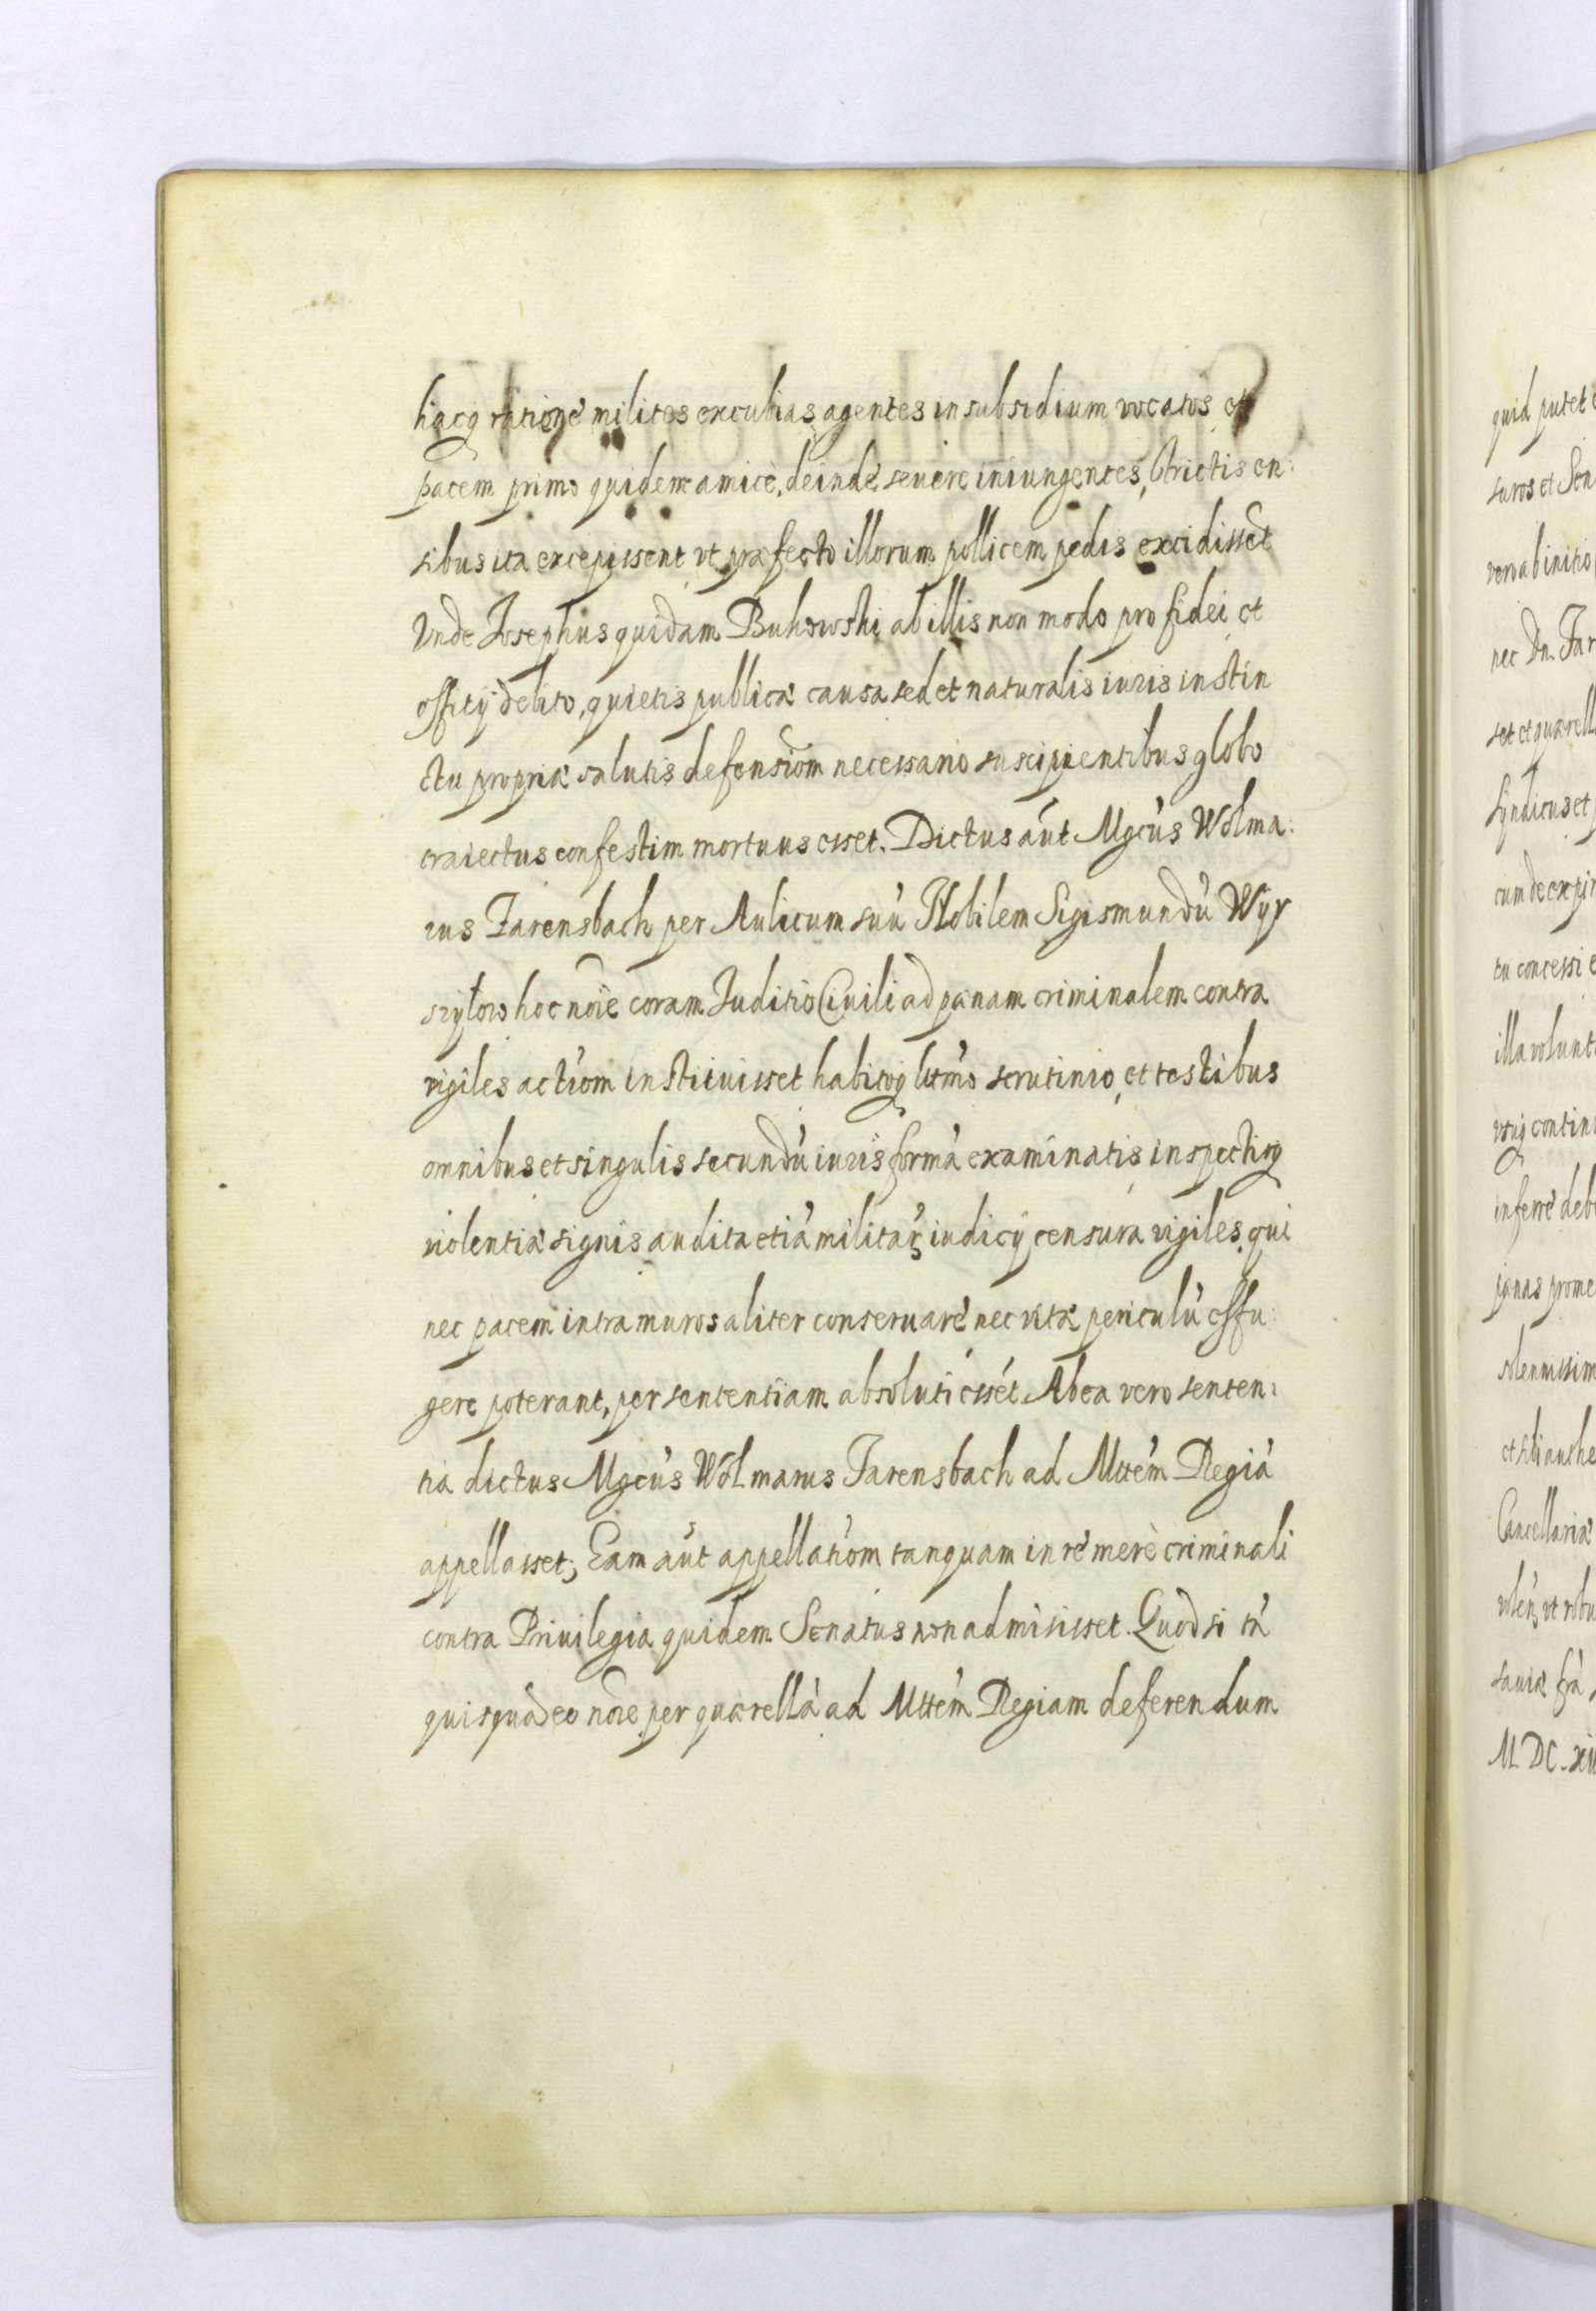 hacq ratione milites excubias agentes in subsidium vocatos et
pacem primo quidem amicè, deindè seuere iniungentes, strictis en:
sibus ita excepissent vt præfecto illorum pollicem pedis excidisset
Vnde Josephus quidam Bukowski ab illis non modo pro fidei et
offitÿ debito, quietis publicæ causa sed et naturalis iuris instin
ctu propriæ salutis defensiom necessario suscipientibus globo
traiectus confestim mortuus esset. Dictus aut Mgcus Wolma:
rus Farensbach per Aulicum suu Nobilem Sigismundu Wyr
szytow hoc noie coram Juditio Ciuili ad pænam criminalem contra
vigiles actiom instituisset habitoq lttmo scrutinio, et testibus
omnibus et singulis secundu iuris forma examinatis inspectisq
violentiæ signis audita etia militar iudicÿ censura vigiles, qui
nec pacem intra muros aliter conseruare nec vitæ periculu effu:
gere poterant, per sententiam absoluti essét Ab ea vero senten:
tia dictus Mgcus Wolmarus Farensbach ad Mttem Regia
appellasset; Eam aut appellatiom tanquam in re merè criminali
contra Priuilegia quidem Senatus non admisisset. Quod si ta
quisqua eo noie per quærella ad Mttem Regiam deferendum
quid putet
suros et Sen
vero ab initio
nec Dn. Far
set et quærell
Syndicus et
cum de expir
tu concessi e
illa volunt
vtriq contin
inferre deb
pænas prome
solennissim
et sibi authe
Cancellariæ
volen, vt robu
sauiæ fra
M. DC. xii